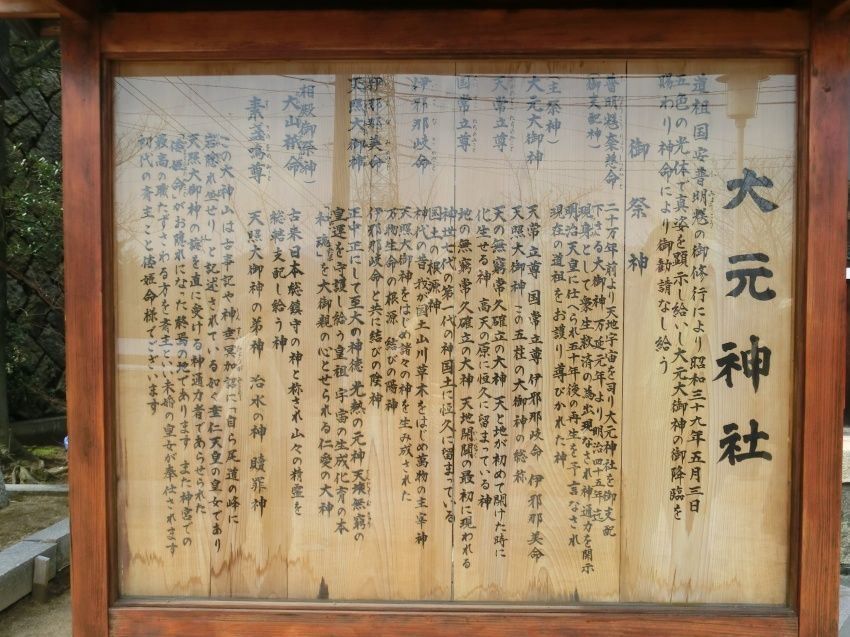 大元神社
道祖国安普明糀の御修行により 昭和三十九年五月三日
五色の光体で真姿を顕示し給いし大元大御神の御降臨を
賜わり神命により御勧請なし給う
御祭神
普明糀黎徳命
(御支配神)
二十万年前より天地宇宙を司り大元神社を御支配
下さる大御神 万延元年より明治四十五年迄
現身として衆生救済の為出現なされ神通力を開示
明治天皇に仕へられ五十年後の再生を予言なされ
現在の道祖をお護り導びかれた神
(主祭神)
大元大御神
天常立尊 国常立尊 伊邪那岐命 伊邪那美命
天照大御神 この五柱の大御神の総称
天常立尊
天の無窮常久確立の大神 天と地が初めて開けた時に
化生せる神 高天の原に恒久に留まっている神
国常立尊
地の無窮常久確立の大神 天地開闢の最初に現われる
神世七代の第一代の神国土に恒久に留まっている
国土の根源神
伊邪那岐命
神代の昔我が国土山川草木をはじめ萬物の主宰神
天照大御神をはじめ諸々の神を生み成された
万物生命の根源 結びの陽神
伊邪那美命
伊邪那岐命と共に結びの陰神
天照大御神
正中正にして至大の神徳 光熱の元神 天壌無窮の
皇運を守護し給う皇祖 宇宙の生成化育の本
「和魂」を大御親の心とせられる仁愛の大神
(相殿御祭神)
大山祇命
古来日本総鎮守の神と称され山々の精霊を
総轄支配し給う神
素盞嗚尊
天照大御神の弟神 治水の神 贖罪神
この大神山は古事記や神 霊冥加認に「自ら尾道の峰に
岩隠れ坐せり」と記述されている如く垂仁天皇の皇女であり
天照大御神の旋を直に受ける神通力者であらせられた
「倭姫命」がお隠れになった終焉の地であります また神宮での
最高の職たずさわる方を斎主といい未婚の皇女が奉仕されます
初代の斎主こと倭姫命様でございます